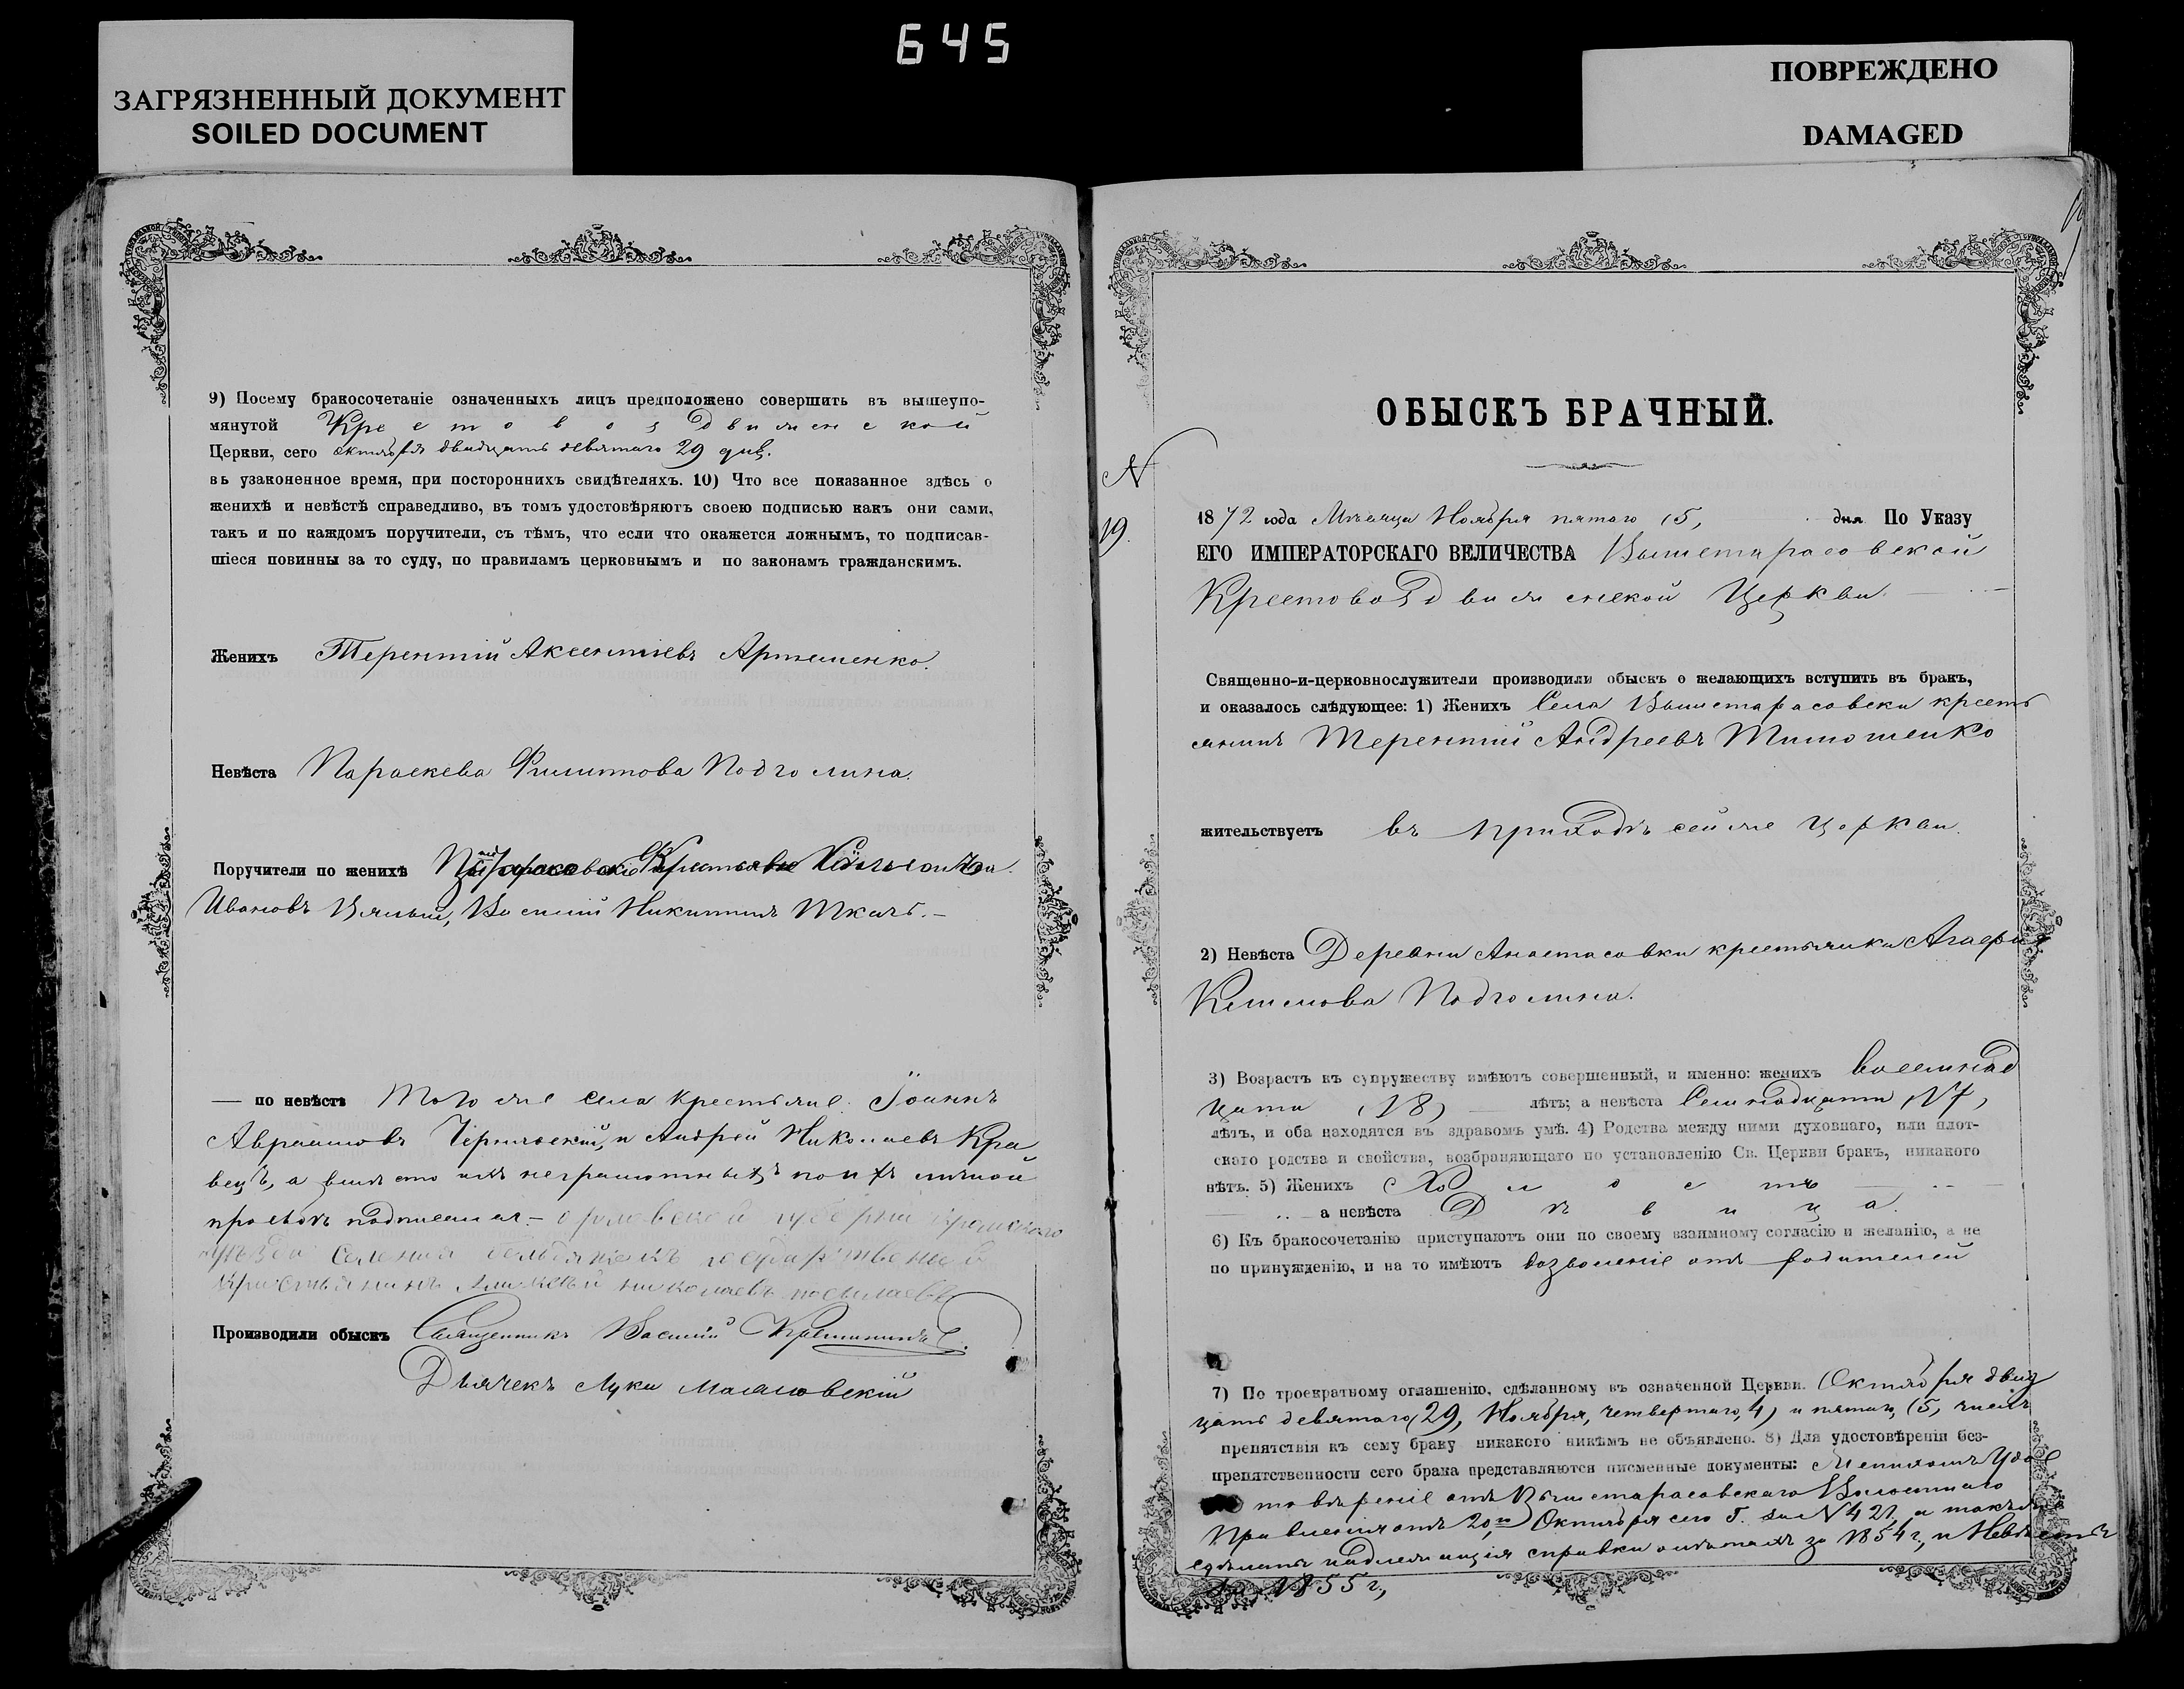 645
ЗАГРЯЗНЕННЫЙ ДОКУМЕНТ
SOILED DOCUMENT
ПОВРЕЖДЕНО
DAMAGED
9) Посему бракосочетаніе означенныхъ лицъ предположено совершить въ вышеупо-
мянутой Крестовоздвиженской
Церкви, сего октября двадцать девятаго 29 дня.
въ узаконенное время, при постороннихъ свидѣтеляхъ. 10) Что все показанное здѣсь о
женихѣ и невѣстѣ справедливо, въ томъ удостовѣряютъ своею подписью какъ они сами,
такъ и по каждомъ поручители, съ тѣмъ, что если что окажется ложнымъ, то подписав-
шіеся повинны за то суду, по правиламъ церковнымъ и по законамъ гражданскимъ.
Женихъ Терентій Аксентіевъ Артеменко.
Невѣста Параскева Филиппова Подголина.
Поручители по женихѣ
Ивановъ Вялый, Василій Никитинъ Ткачъ.
— по невѣстѣ Того же села крестьяне: Іоаннъ
Авраамовъ Чернявскій, и Андрей Николаевъ Кра
вецъ, а вмѣсто ихъ неграмотныхъ по ихъ личной
просьбѣ подписался -
селенія государственный
крестьянинъ Алексей николаевъ
Производили обыскъ Священникъ Василій
Дьячекъ Лука
ОБЫСКЪ БРАЧНЫЙ.
N
19.
1872 года Мѣсяца Ноября пятаго (5, дня По Указу
ЕГО ИМПЕРАТОРСКАГО ВЕЛИЧЕСТВА Вышетарасовской
Крестовоздвиженской Церкви.
Священно-и-церковнослужители производили обыскъ о желающихъ вступить въ бракъ,
и оказалось слѣдующее: 1) Женихъ Села Вышетарасовски кресть
янинъ Терентій Андреевъ Тимошенко
жительствуетъ въ приходѣ сей же Церкви.
2) Невѣста Деревни Анастасовки крестьянка
Подголина.
3) Возрастъ къ супружеству имѣютъ совершенный, и именно: женихъ восемнад
цати (18) лѣтъ; а невѣста Семнадцати (17,
лѣтъ, и оба находятся въ здравомъ умѣ. 4) Родства между ними духовнаго, или плот-
скаго родства и свойства, возбраняющаго по установленію Св. Церкви бракъ, никакого
нѣтъ. 5) Женихъ Холостъ
а невѣста Дѣвица.
6) Къ бракосочетанію приступаютъ они по своему взаимному согласію и желанію, а не
по принужденію, и на то имѣютъ дозволеніе отъ родителей
7) По троекратному оглашенію, сдѣланному въ означенной Церкви. Октября двад
цать девятаго (29, Ноября, четвертаго, 4) и пятаго, (5, числъ
препятствія къ сему браку никакого никѣмъ не объявлено. 8) Для удостовѣренія без-
препятственности сего брака представляются писменные документы: Женихомъ Удос
товѣреніе отъ Вышетарасовскаго Волостнаго
Правленія отъ 20го Октября сего г. за N 421, а также
сдѣланы надлежащія справки о женихѣ за 1854 г., и Невѣстѣ
за 1855 г,